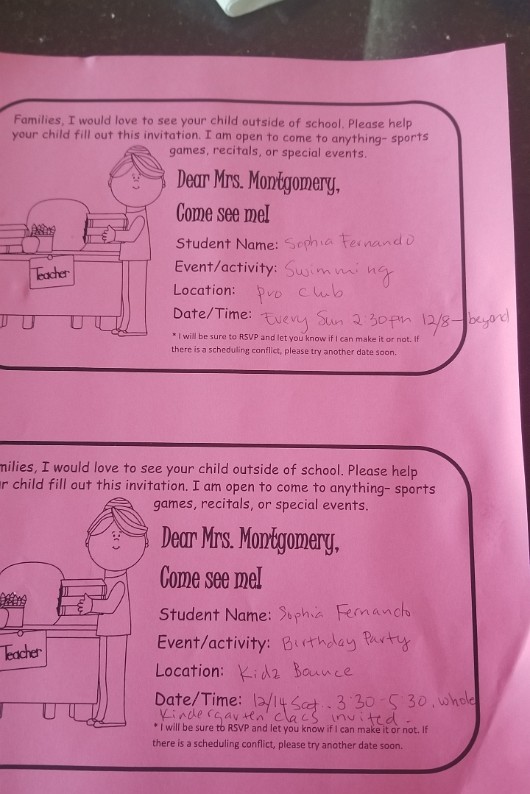 Families, I would love to see your child outside of school. Please help
your child fill out this invitation. I am open to come to anything- sports
games, recitals, or special events.
Dear Mrs. Montgomery,
Come see me!
Student Name: Sophia Fernando
Event/activity: Swimming
Location: pro club
Date/Time: Every Sun 2 30pm 12/8- beyond
* I will be sure to RSVP and let you know if I can make it or not. If
there is a scheduling conflict, please try another date soon.
Teacher
milies, I would love to see your child outside of school. Please help
r child fill out this invitation. I am open to come to anything- sports
games, recitals, or special events.
Dear Mrs. Montgomery,
Come see me!
Student Name: Sophia Fernando
Event/activity: Birthday Party
Location: Kidz Bounce
Date/Time: 12/14 Sat. 3:30-5 30. whole
Kindergarten class invited.
* I will be sure to RSVP and let you know if I can make it or not. If
there is a scheduling conflict, please try another date soon.
Teacher